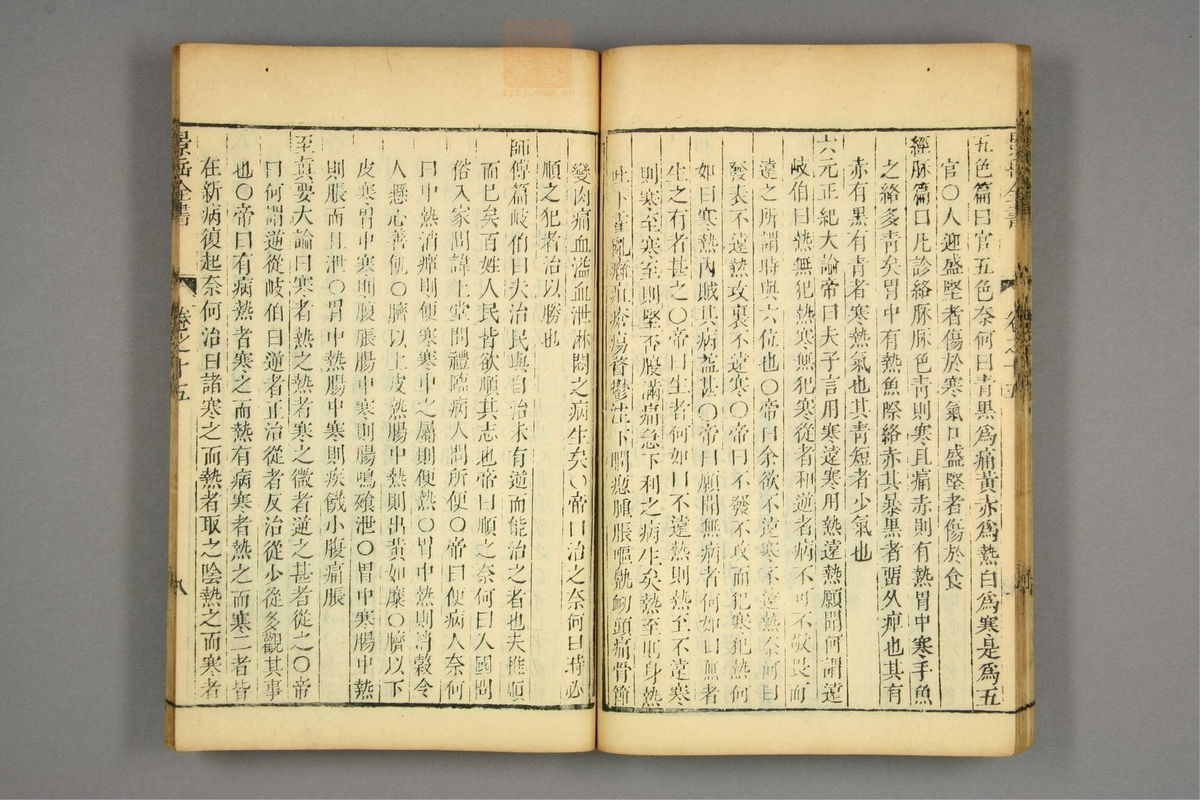 五色篇曰官五色奈何曰青黑爲痛黃赤爲熱白爲寒是爲五
官○人迎盛堅者傷於寒氣口盛堅者傷於食
經脉篇曰凡診絡脉脉色青則寒且痛赤則有熱胃中寒手魚
之絡多青矣胃中有熱魚際絡赤其暴黑者畱久痺也其有
赤有黑有青者寒熱氣也其青短者少氣也
六元正紀大論帝曰夫子言用寒遠寒用熱遠熱願聞何謂遠
岐伯曰熱無犯熱寒無犯寒從者和逆者病不可不敬畏而
遠之所謂時與六位也○帝曰余欲不遠寒不遠熱奈何曰
發表不遠熱攻裏不遠寒○帝曰不發不攻而犯寒犯熱何
如曰寒熱內賊其病益甚○帝曰願聞無病者何如曰無者
生之有者甚之○帝曰生者何如曰不遠熱則熱至不遠寒
則寒至寒至則堅否腹滿痛急下利之病生矣熱至則身熱
吐下霍亂癰疽瘡瘍瞀鬱注下瞤瘛腫脹嘔鼽衄頭痛骨節
變肉痛血溢血泄淋閟之病生矣○帝曰治之奈何曰時必
順之犯者治以勝也
師傳篇岐伯曰夫治民與自治未有逆而能治之者也夫惟順
而已矣百姓人民皆欲順其志也帝曰順之奈何曰入國問
俗入家問諱上堂問禮臨病人問所便○帝曰便病人奈何
曰中熱消癉則便寒寒中之屬則便熱○胃中熱則消穀令
人懸心善飢○臍以上皮熱腸中熱則出黃如糜○臍以下
皮寒胃中寒則腹脹腸中寒則腸鳴飱泄○胃中寒腸中熱
則脹而且泄○胃中熱腸中寒則疾饑小腹痛脹
至眞要大論曰寒者熱之熱者寒之微者逆之甚者從之○帝
曰何謂逆從岐伯曰逆者正治從者反治從少從多觀其事
也○帝曰有病熱者寒之而熱有病寒者熱之而寒二者皆
在新病復起奈何治曰諸寒之而熱者取之陰熱之而寒者
景岳全書
卷之十五
八